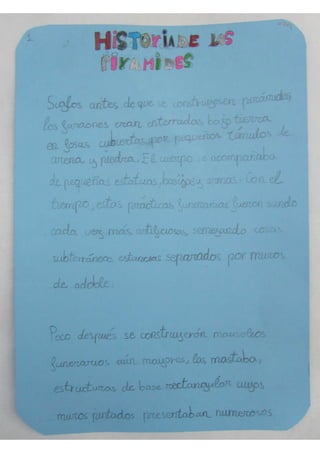 1
HISTORIA DE LAS
PIRAMIDES
Siglos antes de que se construyesen pirámides
los faraones eran enterrados bajo tierra
en fosas cubiertas por pequeños túmulos de
arena y piedra. El cuerpo se acompañaba
de pequeñas estatuas, vasijas y armas. Con el
tiempo, estas prácticas funerarias fueron siendo
cada vez más artificiosas, semejando casas
subterráneas estancias separados por muros
de adobe.
Poco después se construyerón mausoleos
funerarios aún mayores, las mastaba,
estructuras de base rectangular cuyos
muros pintados presentaban numerosos